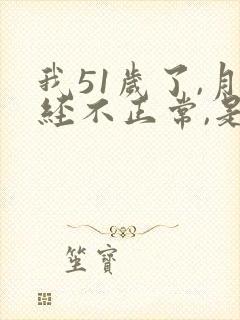 我51歲了,月
經不正常,是
坐寶